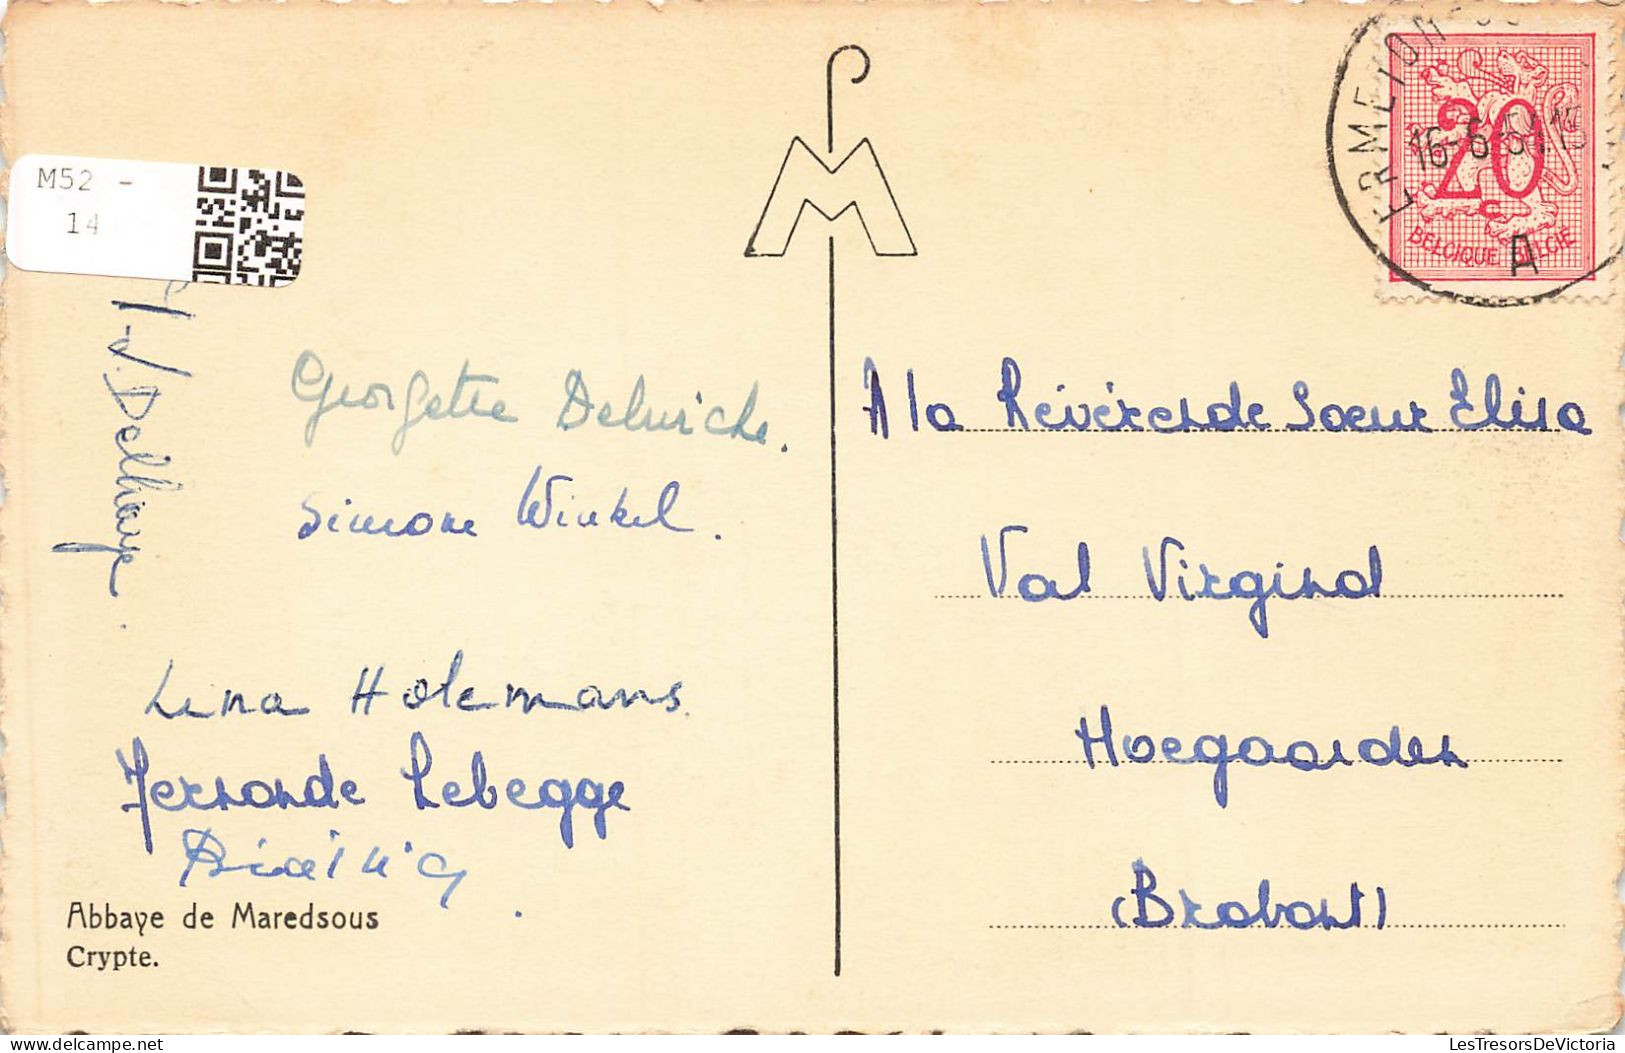 M52 -
14
ERMETON
16-6-51.15
20
BELGIQUE BELGIE
A
M
J. Delhaye.
Georgette Delwiche.
Simone Winkel.
A la Révérende Soeur Elisa
Val Virginal
Hoegaarden
(Brabant)
Lena Holemans
Fernande Lebegge
Abbaye de Maredsous
Crypte.
LesTresorsDeVictoria